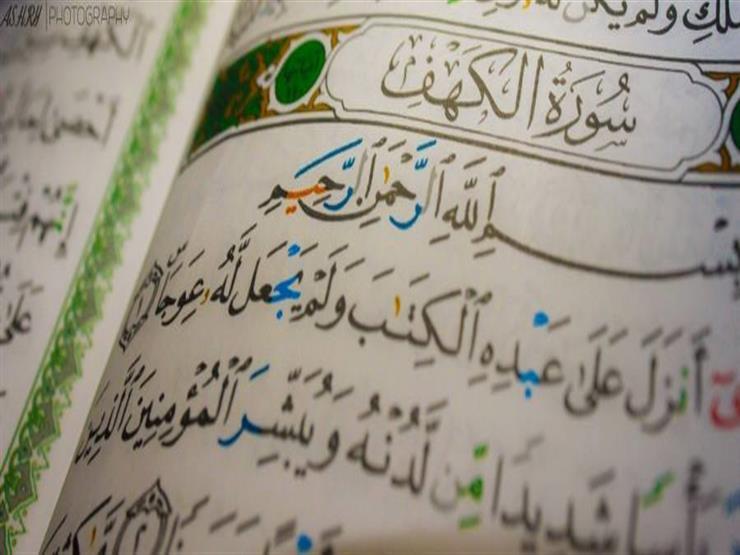 ASHRY | PHOTOGRAPHY
وَلَمْ يَكُن لَّهُ
سُورَةُ الْكَهْفِ
بِسْمِ ٱللَّهِ ٱلرَّحْمَٰنِ ٱلرَّحِيمِ
أَنزَلَ عَلَىٰ عَبْدِهِ ٱلْكِتَٰبَ وَلَمْ يَجْعَل لَّهُۥ عِوَجَا ۜ ١
بَأْسًا شَدِيدًا مِّن لَّدُنْهُ وَيُبَشِّرَ ٱلْمُؤْمِنِينَ ٱلَّذِينَ